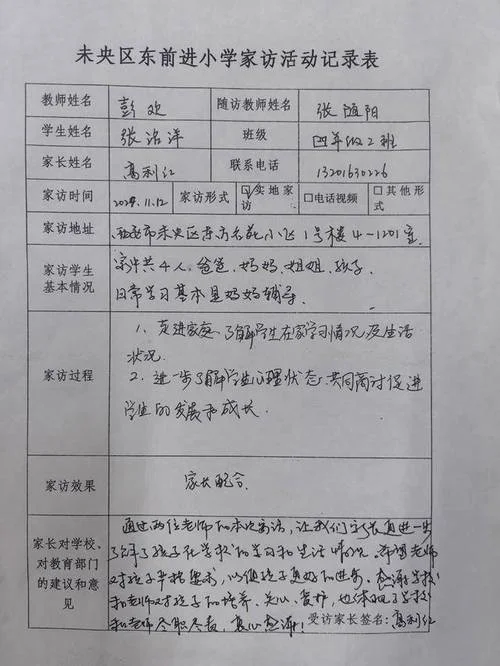 未央区东前进小学家访活动记录表
教师姓名 彭欢 随访教师姓名 张随阳
学生姓名 张洛洋 班级 四年级2班
家长姓名 高利红 联系电话 13201630226
家访时间 2024.11.12 家访形式 ☑实地家访 □电话视频 □其他形式
家访地址 西安市未央区东方名苑小区1号楼4-1201室
家访学生基本情况 家中共4人,爸爸、妈妈、姐姐、孩子.
日常学习基本是妈妈辅导.
家访过程 1、走进家庭、了解学生在家学习情况及生活
状况.
2、进一步了解学生心理状态,共同商讨促进
学生的发展和成长.
家访效果 家长配合.
家长对学校、对教育部门的建议和意见 通过两位老师的本次家访,让我们家长更进一步
了解了孩子在学校的学习和生活情况.希望老师
对孩子严格要求,以便孩子更好的进步.感谢学校
和老师对孩子的培养、关心、爱护,也体现了学校
和老师尽职尽责,真心感谢!
受访家长签名:高利红